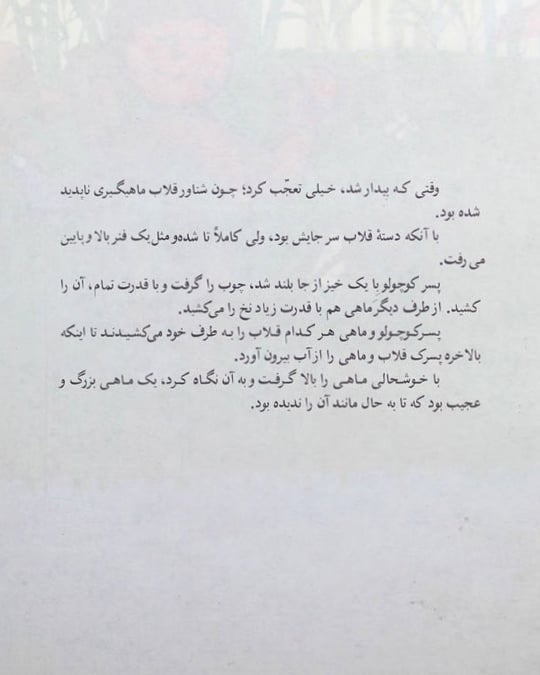 وقتی که بیدار شد، خیلی تعجّب کرد؛ چون شناور قلاب ماهیگیری ناپدید
شده بود.
با آنکه دستهٔ قلاب سر جایش بود، ولی کاملاً تا شده و مثل یک فنر بالا و پایین
می رفت.
پسر کوچولو با یک خیز از جا بلند شد، چوب را گرفت و با قدرت تمام، آن را
کشید. از طرف دیگر ماهی هم با قدرت زیاد نخ را می‌کشید.
پسرکوچولو و ماهی هر کدام قلاب را به طرف خود می‌کشیدند تا اینکه
بالاخره پسرک قلاب و ماهی را از آب بیرون آورد.
با خوشحالی ماهی را بالا گرفت و به آن نگاه کرد، یک ماهی بزرگ و
عجیب بود که تا به حال مانند آن را ندیده بود.